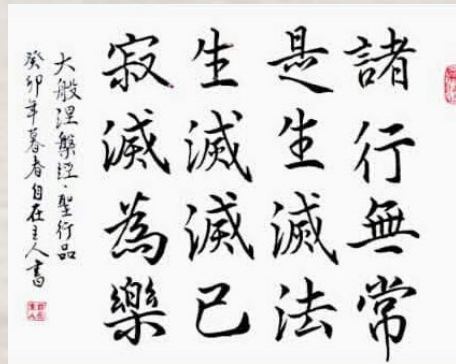 諸行無常
是生滅法
生滅滅已
寂滅為樂
大般涅槃經·聖行品
癸卯年暮春自在主人書